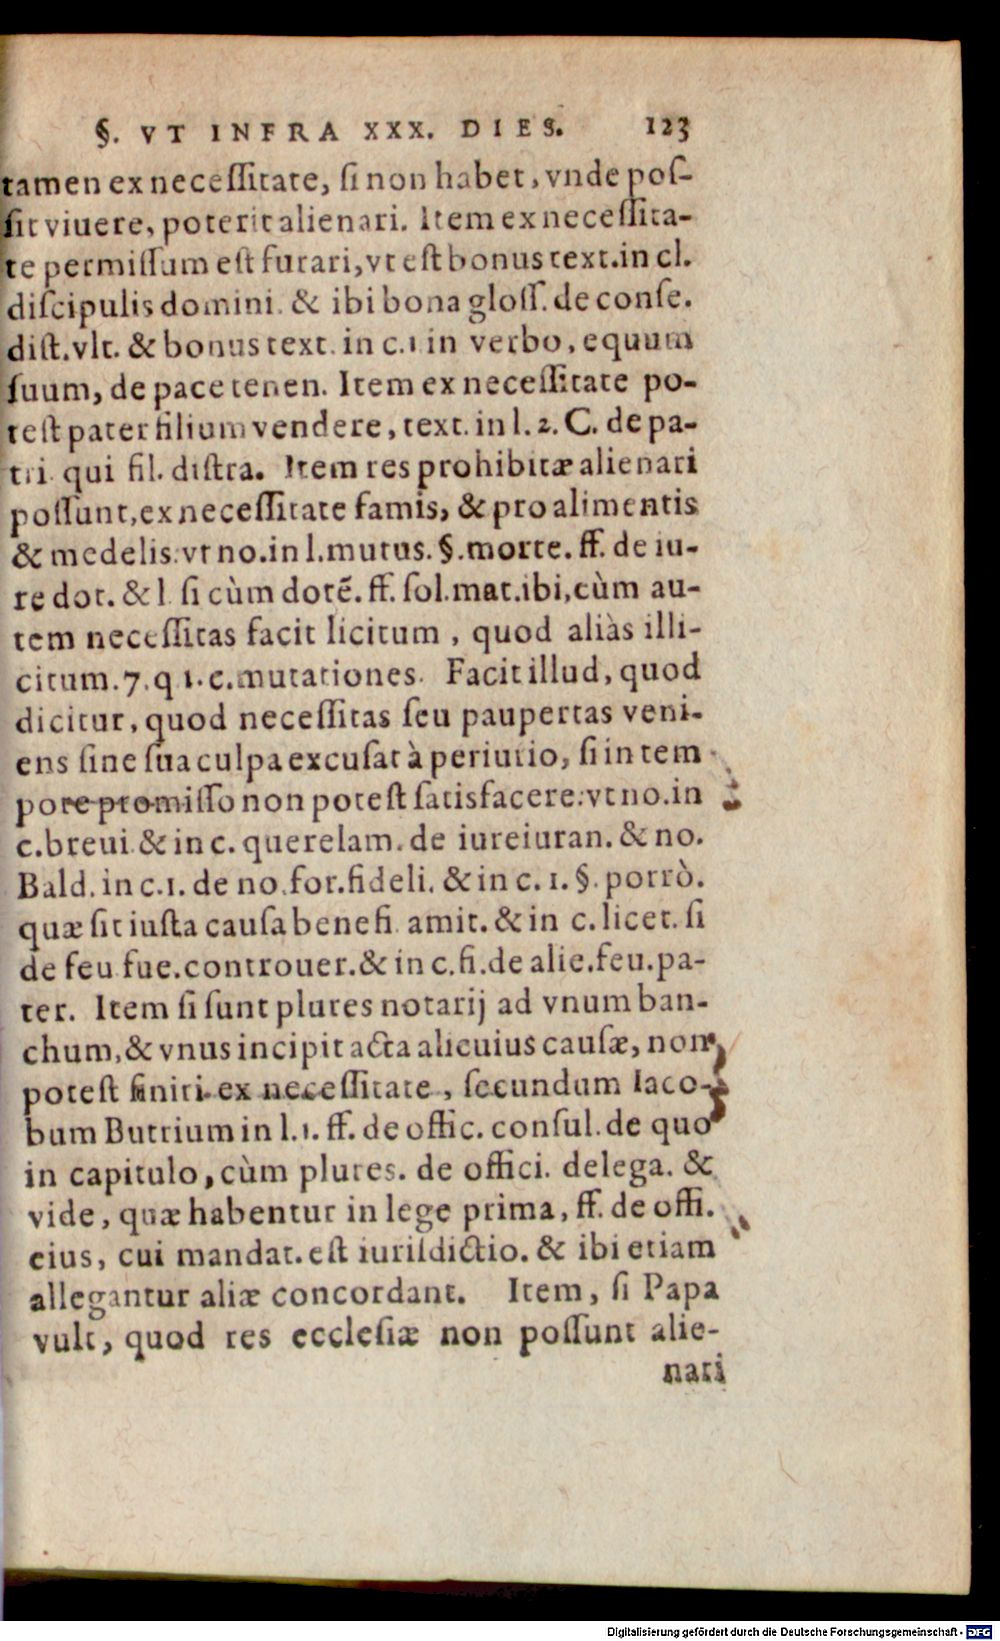 §. VT INFRA XXX. DIES. 123
tamen ex necessitate, si non habet, vnde pos-
sit viuere, poterit alienari. Item ex necessita-
te permissum est furari, vt est bonus text. in cl.
discipulis domini. & ibi bona gloss. de conse.
dist. vlt. & bonus text. in c. 1 in verbo, equum
suum, de pace tenen. Item ex necessitate po-
test pater filium vendere, text. in l. 2. C. de pa-
tri. qui fil. distra. Item res prohibitæ alienari
possunt, ex necessitate famis, & pro alimentis
& medelis: vt no. in l. mutus. §. morte. ff. de iu-
re dot. & l. si cùm dotē. ff. sol. mat. ibi, cùm au-
tem necessitas facit licitum, quod aliàs illi-
citum. 7. q 1. c. mutationes. Facit illud, quod
dicitur, quod necessitas seu paupertas veni-
ens sine sua culpa excusat à periurio, si in tem
pore promisso non potest satisfacere: vt no. in
c. breui. & in c. querelam. de iureiuran. & no.
Bald. in c. 1. de no. for. fideli. & in c. 1. §. porrò.
quæ sit iusta causa benefi. amit. & in c. licet. si
de feu fue. controuer. & in c. fi. de alie. feu. pa-
ter. Item si sunt plures notarij ad vnum ban-
chum, & vnus incipit acta alicuius causæ, non
potest finiri ex necessitate, secundum Iaco-
bum Butrium in l. 1. ff. de offic. consul. de quo
in capitulo, cùm plures. de offici. delega. &
vide, quæ habentur in lege prima, ff. de offi.
eius, cui mandat. est iurisdictio. & ibi etiam
allegantur aliæ concordant. Item, si Papa
vult, quod res ecclesiæ non possunt alie-
nari
Digitalisierung gefördert durch die Deutsche Forschungsgemeinschaft - DFG